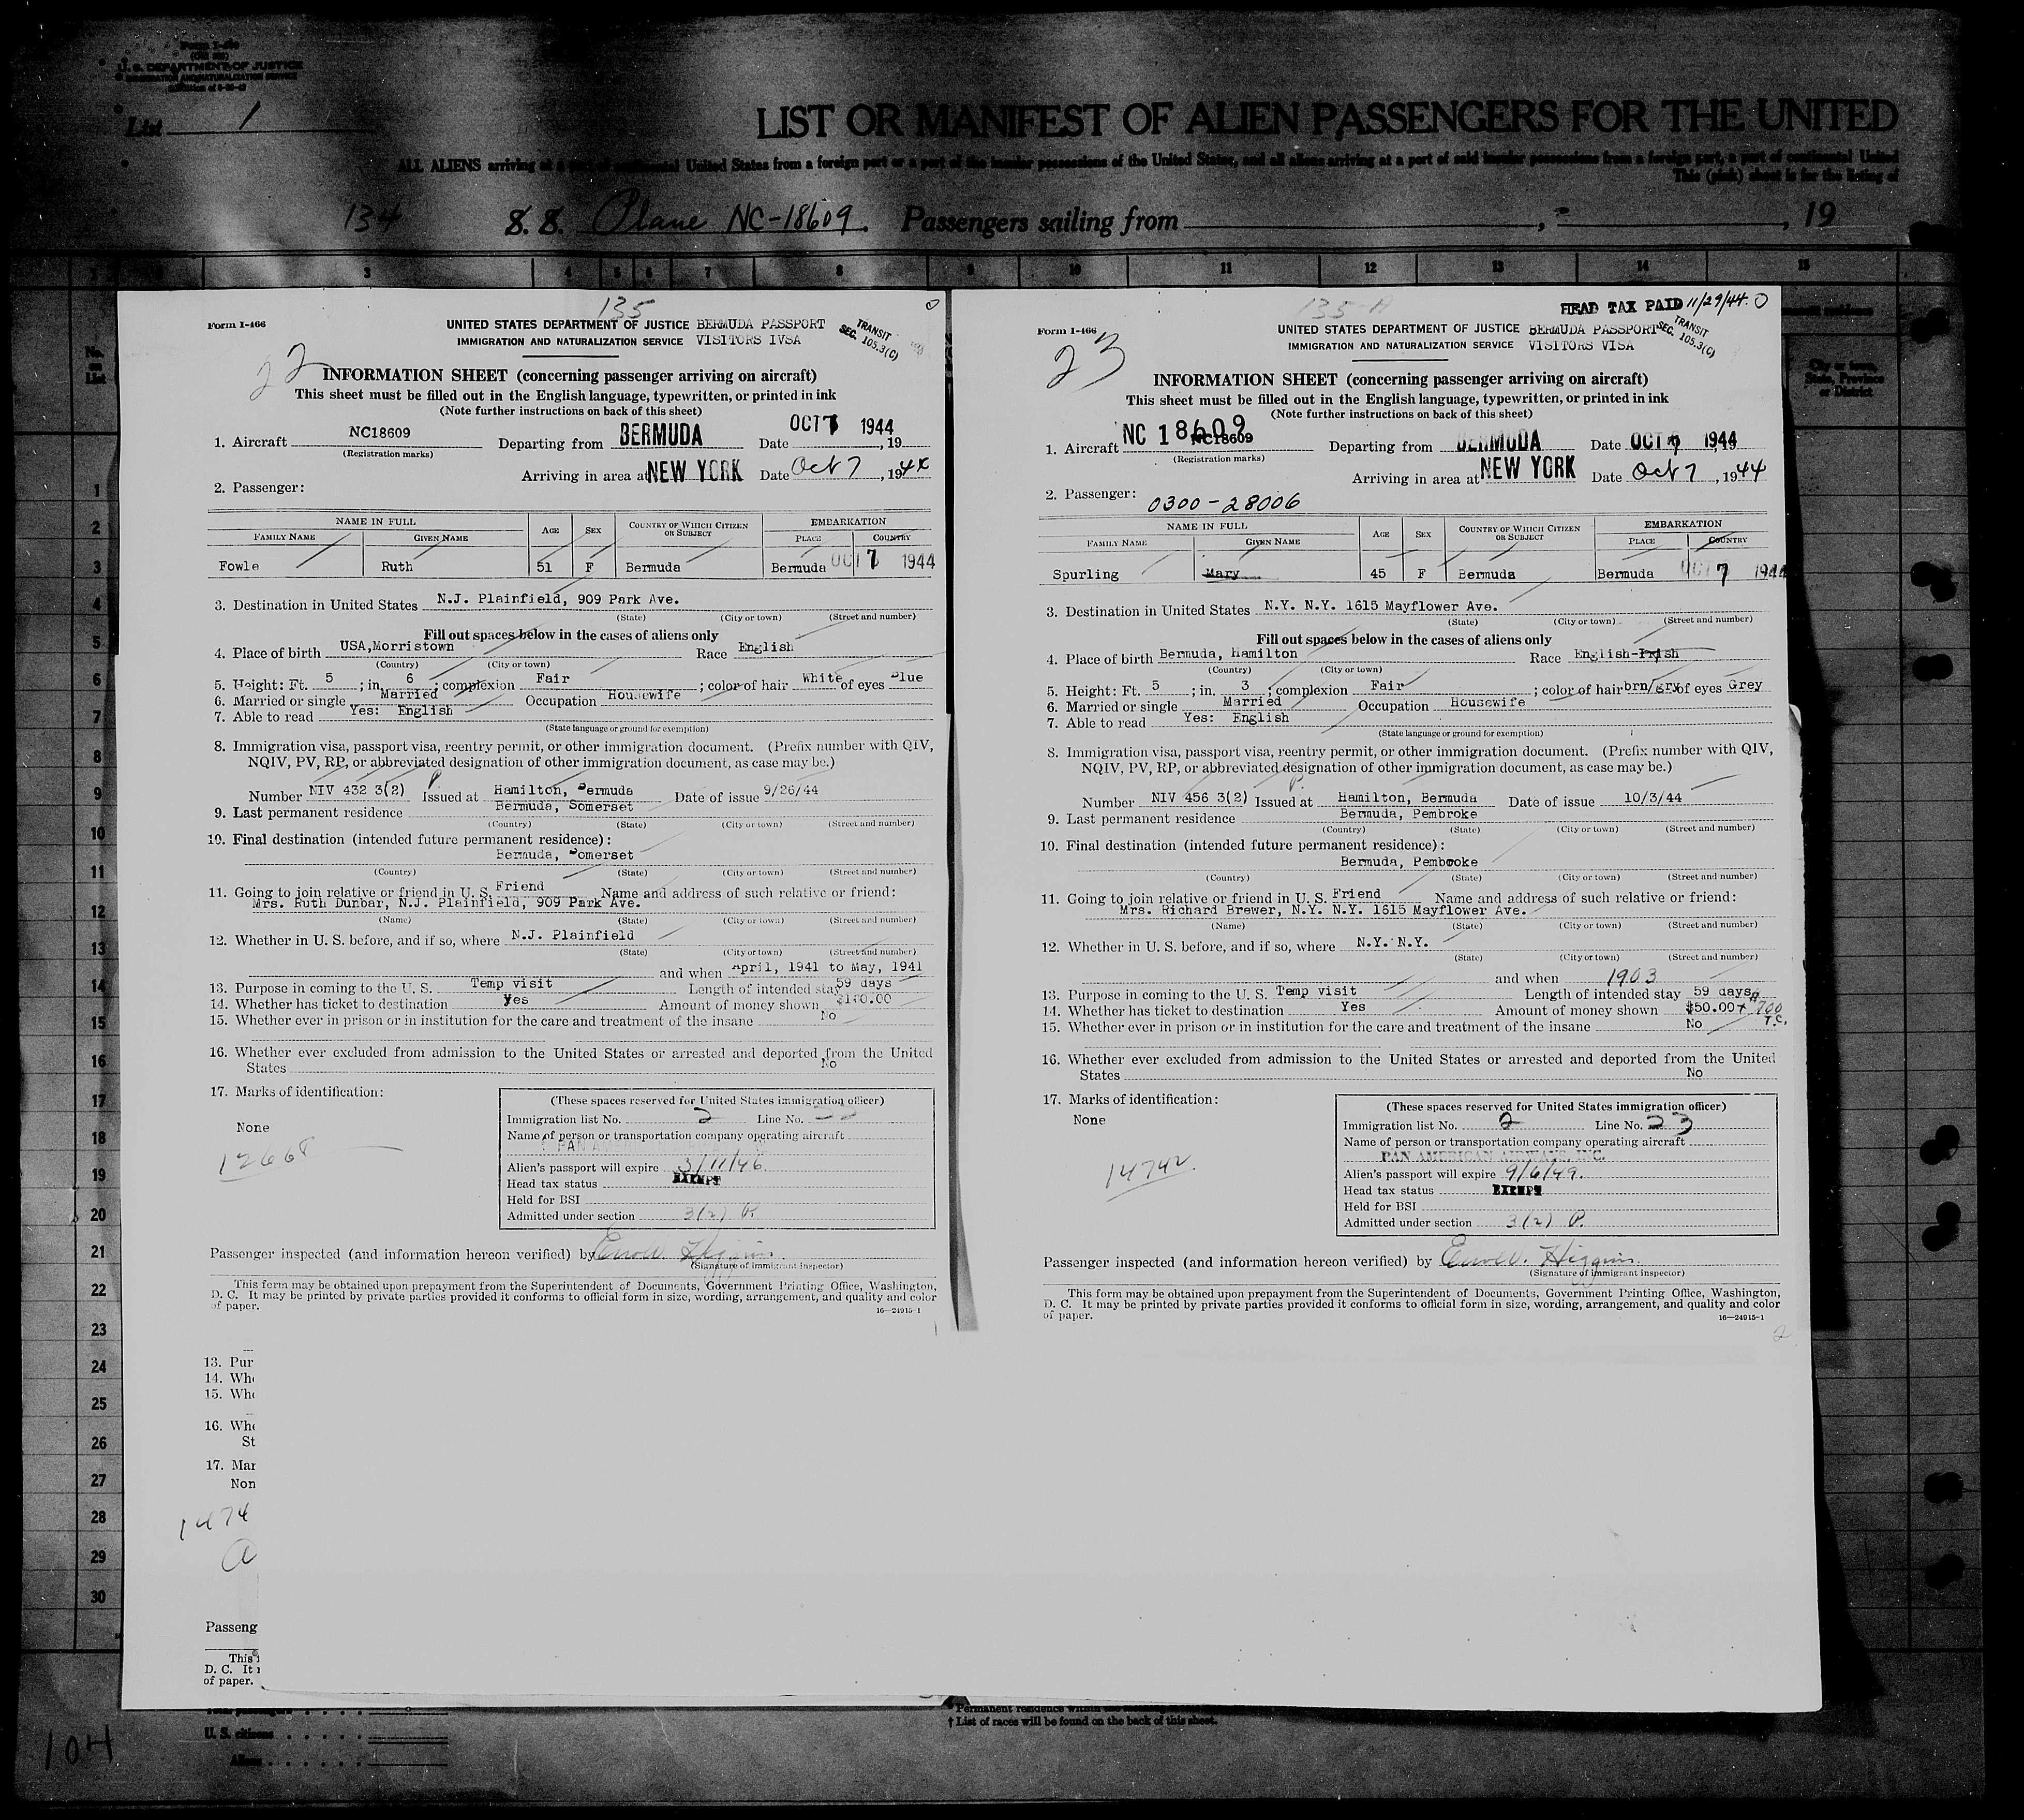 U. S. DEPARTMENT OF JUSTICE
IMMIGRATION AND NATURALIZATION SERVICE
List 1
LIST OR MANIFEST OF ALIEN PASSENGERS FOR THE UNITED
ALL ALIENS arriving at a port of continental United States from a foreign port or a port of the insular possessions of the United States, and all aliens arriving at a port of said insular possessions from a foreign port, a port of continental United
This (pink) sheet is for the listing of
134 S. S. Plane NC-18609. Passengers sailing from , , 19
3 4 5 6 7 8 9 10 11 12 13 14 15
No. on List
City or town, State, Province or District
135
Form I-466
UNITED STATES DEPARTMENT OF JUSTICE BERMUDA PASSPORT
IMMIGRATION AND NATURALIZATION SERVICE VISITORS IVSA
TRANSIT
SEC. 105.3(C)
22
INFORMATION SHEET (concerning passenger arriving on aircraft)
This sheet must be filled out in the English language, typewritten, or printed in ink
(Note further instructions on back of this sheet)
1. Aircraft NC18609 Departing from BERMUDA Date OCT 7 1944, 19
(Registration marks)
Arriving in area at NEW YORK Date Oct 7, 1944
2. Passenger:
NAME IN FULL AGE SEX COUNTRY OF WHICH CITIZEN OR SUBJECT EMBARKATION
FAMILY NAME GIVEN NAME PLACE COUNTRY
Fowle Ruth 51 F Bermuda Bermuda OCT 7 1944
3. Destination in United States N.J. Plainfield, 909 Park Ave.
(State) (City or town) (Street and number)
Fill out spaces below in the cases of aliens only
4. Place of birth USA,Morristown Race English
(Country) (City or town)
5. Height: Ft. 5 ; in. 6 ; complexion Fair ; color of hair White of eyes Blue
6. Married or single Married Occupation Housewife
7. Able to read Yes: English
(State language or ground for exemption)
8. Immigration visa, passport visa, reentry permit, or other immigration document. (Prefix number with QIV,
NQIV, PV, RP, or abbreviated designation of other immigration document, as case may be.)
P.
Number NIV 432 3(2) Issued at Hamilton, Bermuda Date of issue 9/26/44
9. Last permanent residence Bermuda, Somerset
(Country) (State) (City or town) (Street and number)
10. Final destination (intended future permanent residence):
Bermuda, Somerset
(Country) (State) (City or town) (Street and number)
11. Going to join relative or friend in U. S. Friend Name and address of such relative or friend:
Mrs. Ruth Dunbar, N.J. Plainfield, 909 Park Ave.
(Name) (State) (City or town) (Street and number)
12. Whether in U. S. before, and if so, where N.J. Plainfield
(State) (City or town) (Street and number)
and when April, 1941 to May, 1941
13. Purpose in coming to the U. S. Temp visit Length of intended stay 59 days
14. Whether has ticket to destination Yes Amount of money shown $100.00
15. Whether ever in prison or in institution for the care and treatment of the insane No
16. Whether ever excluded from admission to the United States or arrested and deported from the United
States No
17. Marks of identification:
None
12668
(These spaces reserved for United States immigration officer)
Immigration list No. 2 Line No. 22
Name of person or transportation company operating aircraft
PAN A
Alien's passport will expire 3/11/46
Head tax status EXEMPT
Held for BSI
Admitted under section 3(2) P.
Passenger inspected (and information hereon verified) by Errol W. Higgins
(Signature of immigrant inspector)
This form may be obtained upon prepayment from the Superintendent of Documents, Government Printing Office, Washington,
D. C. It may be printed by private parties provided it conforms to official form in size, wording, arrangement, and quality and color
of paper.
16—24915-1
135-A
HEAD TAX PAID 11/29/44.
Form I-466
UNITED STATES DEPARTMENT OF JUSTICE BERMUDA PASSPORT
IMMIGRATION AND NATURALIZATION SERVICE VISITORS VISA
TRANSIT
SEC. 105.3(C)
23
INFORMATION SHEET (concerning passenger arriving on aircraft)
This sheet must be filled out in the English language, typewritten, or printed in ink
(Note further instructions on back of this sheet)
1. Aircraft NC 18609 NC18609 Departing from BERMUDA Date OCT 7 1944
(Registration marks)
Arriving in area at NEW YORK Date Oct 7, 1944
2. Passenger: 0300-28006
NAME IN FULL AGE SEX COUNTRY OF WHICH CITIZEN OR SUBJECT EMBARKATION
FAMILY NAME GIVEN NAME PLACE COUNTRY
Spurling Mary 45 F Bermuda Bermuda OCT 7 1944
3. Destination in United States N.Y. N.Y. 1615 Mayflower Ave.
(State) (City or town) (Street and number)
Fill out spaces below in the cases of aliens only
4. Place of birth Bermuda, Hamilton Race English-Irish
(Country) (City or town)
5. Height: Ft. 5 ; in. 3 ; complexion Fair ; color of hair brn/gry of eyes Grey
6. Married or single Married Occupation Housewife
7. Able to read Yes: English
(State language or ground for exemption)
8. Immigration visa, passport visa, reentry permit, or other immigration document. (Prefix number with QIV,
NQIV, PV, RP, or abbreviated designation of other immigration document, as case may be.)
P.
Number NIV 456 3(2) Issued at Hamilton, Bermuda Date of issue 10/3/44
9. Last permanent residence Bermuda, Pembroke
(Country) (State) (City or town) (Street and number)
10. Final destination (intended future permanent residence):
Bermuda, Pembroke
(Country) (State) (City or town) (Street and number)
11. Going to join relative or friend in U. S. Friend Name and address of such relative or friend:
Mrs. Richard Brewer, N.Y. N.Y. 1615 Mayflower Ave.
(Name) (State) (City or town) (Street and number)
12. Whether in U. S. before, and if so, where N.Y. N.Y.
(State) (City or town) (Street and number)
and when 1903
13. Purpose in coming to the U. S. Temp visit Length of intended stay 59 days
14. Whether has ticket to destination Yes Amount of money shown $50.00 + $700 T.C.
15. Whether ever in prison or in institution for the care and treatment of the insane No
16. Whether ever excluded from admission to the United States or arrested and deported from the United
States No
17. Marks of identification:
None
14742
(These spaces reserved for United States immigration officer)
Immigration list No. 2 Line No. 23
Name of person or transportation company operating aircraft
PAN AMERICAN AIRWAYS, INC.
Alien's passport will expire 9/6/49.
Head tax status EXEMPT
Held for BSI
Admitted under section 3(2) P.
Passenger inspected (and information hereon verified) by Errol W. Higgins
(Signature of immigrant inspector)
This form may be obtained upon prepayment from the Superintendent of Documents, Government Printing Office, Washington,
D. C. It may be printed by private parties provided it conforms to official form in size, wording, arrangement, and quality and color
of paper.
16—24915-1
2
1
2
3
4
5
6
7
8
9
10
11
12
13
14
15
16
17
18
19
20
21
22
23
24
25
26
27
28
29
30
13. Pur
14. Whe
15. Whe
16. Whe
St
17. Mar
Non
1474
a
Passeng
This f
D. C. It r
of paper.
Permanent residence within
† List of races will be found on the back of this sheet.
Total passengers
U. S. citizens
Aliens
104